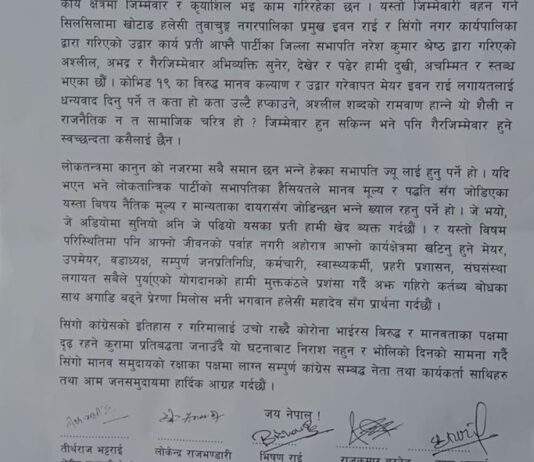 कार्य क्षेत्रमा जिम्मेवार र कृयाशिल भइ काम गरिरहेका छन । यस्तो जिम्मेवारी वहन गर्ने
सिलसिलामा खोटाङ हलेसी तुवाचुङ नगरपालिका प्रमुख इवन राई र सिंगो नगर कार्यपालिका
द्वारा गरिएको उद्वार कार्य प्रती आफ्नै पार्टीका जिल्ला सभापति नरेश कुमार श्रेष्ठ द्वारा गरिएको
अश्लील, अभद्र र गैरजिम्मेवार अभिव्यक्ति सुनेर, देखेर र पढेर हामी दुखी, अचम्मित र स्तब्ध
भएका छौं । कोभिड १९ का विरुद्ध मानव कल्याण र उद्वार गरेवापत मेयर इवन राई लगायतलाई
धन्यवाद दिनु पर्ने त कता हो कता उल्टै हप्काउने, अश्लील शब्दको रामवाण हान्ने यो शैली न
राजनैतिक न त सामाजिक चरित्र हो ? जिम्मेवार हुन सकिन्न भने पनि गैरजिम्मेवार हुने
स्वच्छन्दता कसैलाई छैन ।
लोकतन्त्रमा कानुन को नजरमा सबै समान छन भन्ने हेक्का सभापति ज्यू लाई हुनु पर्ने हो । यदि
भएन भने लोकतान्त्रिक पार्टीको सभापतिका हैसियतले मानव मूल्य र पद्धति संग जोडिएका
यस्ता बिषय नैतिक मूल्य र मान्यताका दायरासँग जोडिन्छन भन्ने ख्याल रहनु पर्ने हो । जे भयो,
जे अडियोमा सुनियो अनि जे पढियो यसका प्रती हामी खेद व्यक्त गर्दछौं । र यस्तो विषम
परिस्थितिमा पनि आफ्नो जीवनको पर्वाह नगरी अहोरात्र आफ्नो कार्यक्षेत्रमा खटिनु हुने मेयर,
उपमेयर, वडाध्यक्ष, सम्पुर्ण जनप्रतिनिधि, कर्मचारी, स्वास्थ्यकर्मी, प्रहरी प्रशासन, संघसंस्था
लगायत सबैले पुर्याएको योगदानको हामी मुक्तकंठले प्रशंसा गर्दै अझ गहिरो कर्तव्य बोधका
साथ अगाडि बढ्ने प्रेरणा मिलोस भनी भगवान हलेसी महादेव संग प्रार्थना गर्दछौं ।
सिंगो कांग्रेसको इतिहास र गरिमालाई उचो राख्दै कोरोना भाईरस बिरुद्ध र मानवताका पक्षमा
दृढ रहने कुरामा प्रतिबद्धता जनाउदै यो घटनाबाट निराश नहुन र भोलिको दिनको सामना गर्दै
सिंगो मानव समुदायको रक्षाका पक्षमा लाग्न सम्पुर्ण कांग्रेस सम्बद्ध नेता तथा कार्यकर्ता साथिहरु
तथा आम जनसमुदायमा हार्दिक आग्रह गर्दछौं ।
जय नेपाल !
तीर्थराज भट्टराई लोकेन्द्र राजभण्डारी भिषण राई